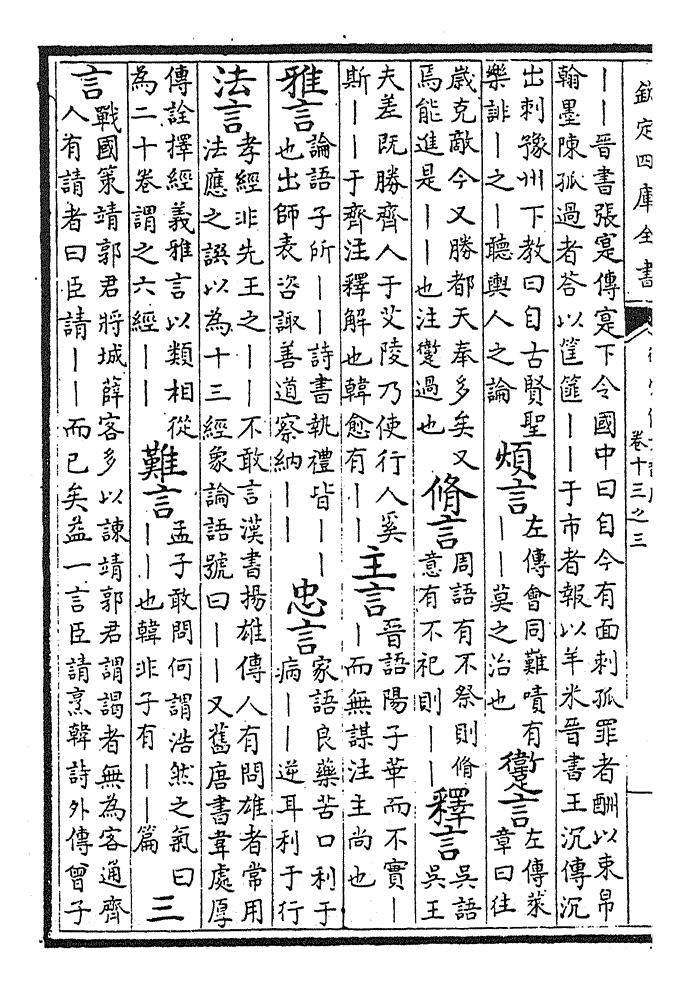 欽定四庫全書
卷十三之三
｜｜晉書張寔傳寔下令國中曰自今有面刺孤罪者酬以束帛
翰墨陳孤過者荅以筐篚｜｜于市者報以羊米晉書王沉傳沉
出刺豫州下教曰自古賢聖
樂誹｜之｜聽輿人之論
煩言
左傳會同難嘖有
｜｜莫之治也
躗言
左傳萊
章曰往
歲克敵今又勝都天奉多矣又
焉能進是｜｜也注躗過也
脩言
周語有不祭則脩
意有不祀則｜｜
釋言
吳語
吳王
夫差既勝齊人于艾陵乃使行人奚
斯｜｜于齊注釋解也韓愈有｜｜
主言
晉語陽子華而不實｜
｜而無謀注主尚也
雅言
論語子所｜｜詩書執禮皆｜｜
也出師表咨諏善道察納｜｜
忠言
家語良藥苦口利于
病｜｜逆耳利于行
法言
孝經非先王之｜｜不敢言漢書揚雄傳人有問雄者常用
法應之譔以為十三經象論語號曰｜｜又舊唐書韋處厚
傳詮擇經義雅言以類相從
為二十卷謂之六經｜｜
難言
孟子敢問何謂浩然之氣曰
｜｜也韓非子有｜｜篇
三
言
戰國策靖郭君將城薛客多以諫靖郭君謂謁者無為客通齊
人有請者曰臣請｜｜而已矣益一言臣請烹韓詩外傳曾子